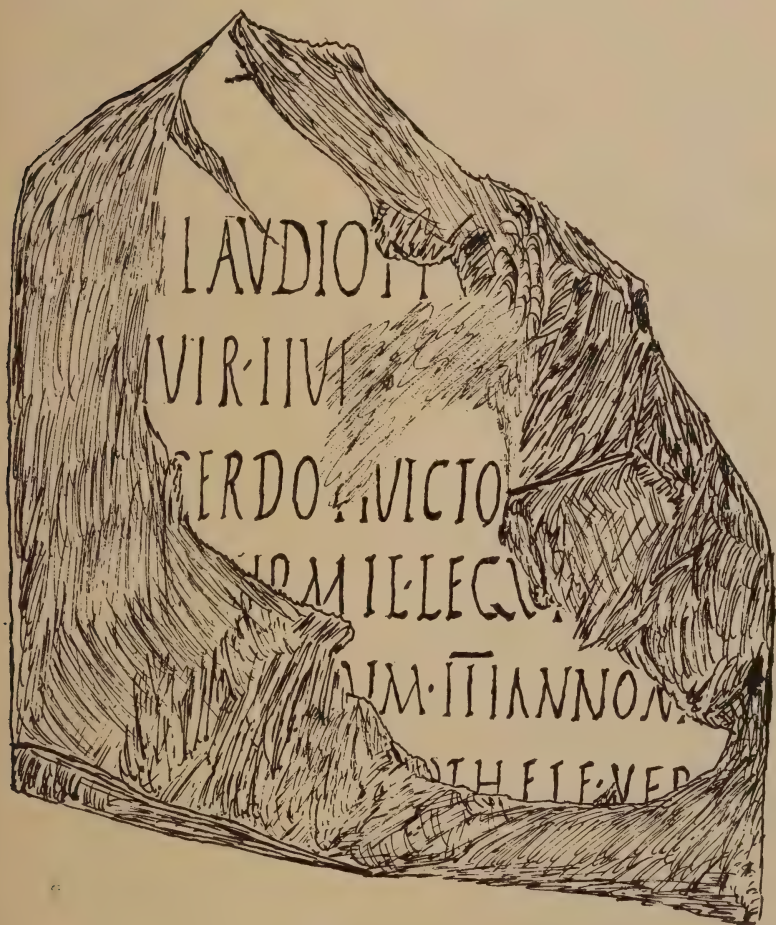 LAVDIO
IVIR·IIVI
CERDO VICTO
MIL·LEG
IM·III ANNON
THELE·VER